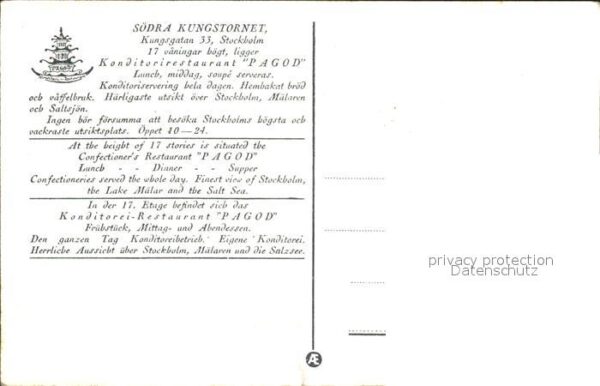 SÖDRA KUNGSTORNET,
Kungsgatan 33, Stockholm
17 våningar högt, ligger
Konditorirestaurant "PAGOD"
Lunch, middag, soupé serveras.
Konditoriservering hela dagen. Hembakat bröd
och våffelbruk. Härligaste utsikt över Stockholm, Mälaren
och Saltsjön.
Ingen bör försumma att besöka Stockholms högsta och
vackraste utsiktsplats. Öppet 10—24.
At the height of 17 stories is situated the
Confectioner's Restaurant "PAGOD"
Lunch - - Dinner - - Supper
Confectioneries served the whole day. Finest view of Stockholm,
the Lake Mälar and the Salt Sea.
In der 17. Etage befindet sich das
Konditorei-Restaurant "PAGOD"
Frühstück, Mittag- und Abendessen.
Den ganzen Tag Konditoreibetrieb. Eigene Konditorei.
Herrliche Aussicht über Stockholm, Mälaren und die Salzsee.
privacy protection
Datenschutz
Æ